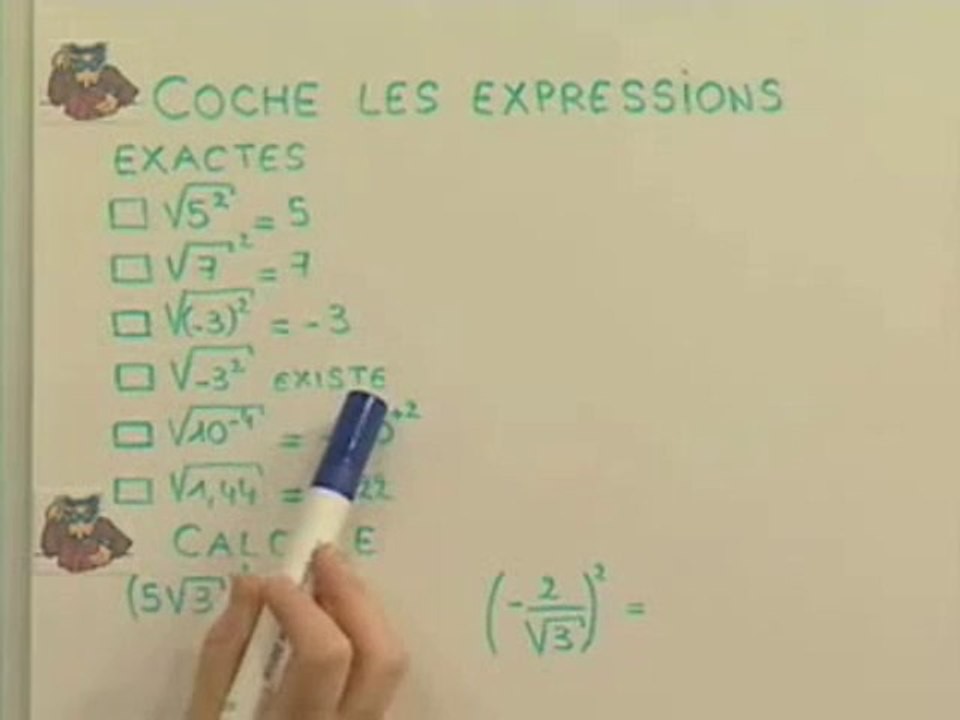 COCHE LES EXPRESSIONS
EXACTES
□ √5² = 5
□ √7² = 7
□ √(-3)² = -3
□ √-3² EXISTE
□ √10⁻⁴ =
□ √1,44 =
(5√3
(-2/√3)² =